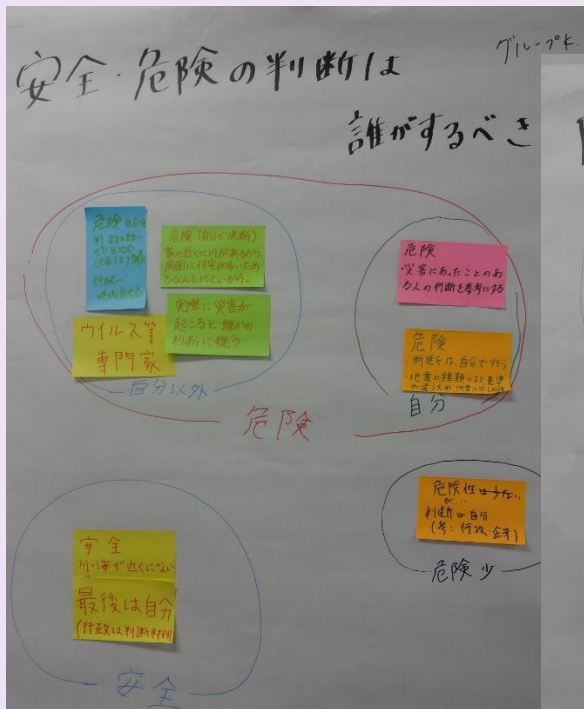 グループK.
安全・危険の判断は
誰がするべき
危険
危険(自分で決断)
家の近くに川があるから。
周囲に住宅が多いため
ひなんしにくいから。
実際に災害が
起こると誰かの
判断に従う
ウイルス等
専門家
自分以外
危険
・災害にあったことのあ
る人の判断を参考にする
危険
・判断は、自分で行う
自分
危険
危険性は少ない
が…
判断は自分
(考:行政・企業)
危険少
安全
川・海が近くにない
最後は自分
(行政は判断材料)
安全